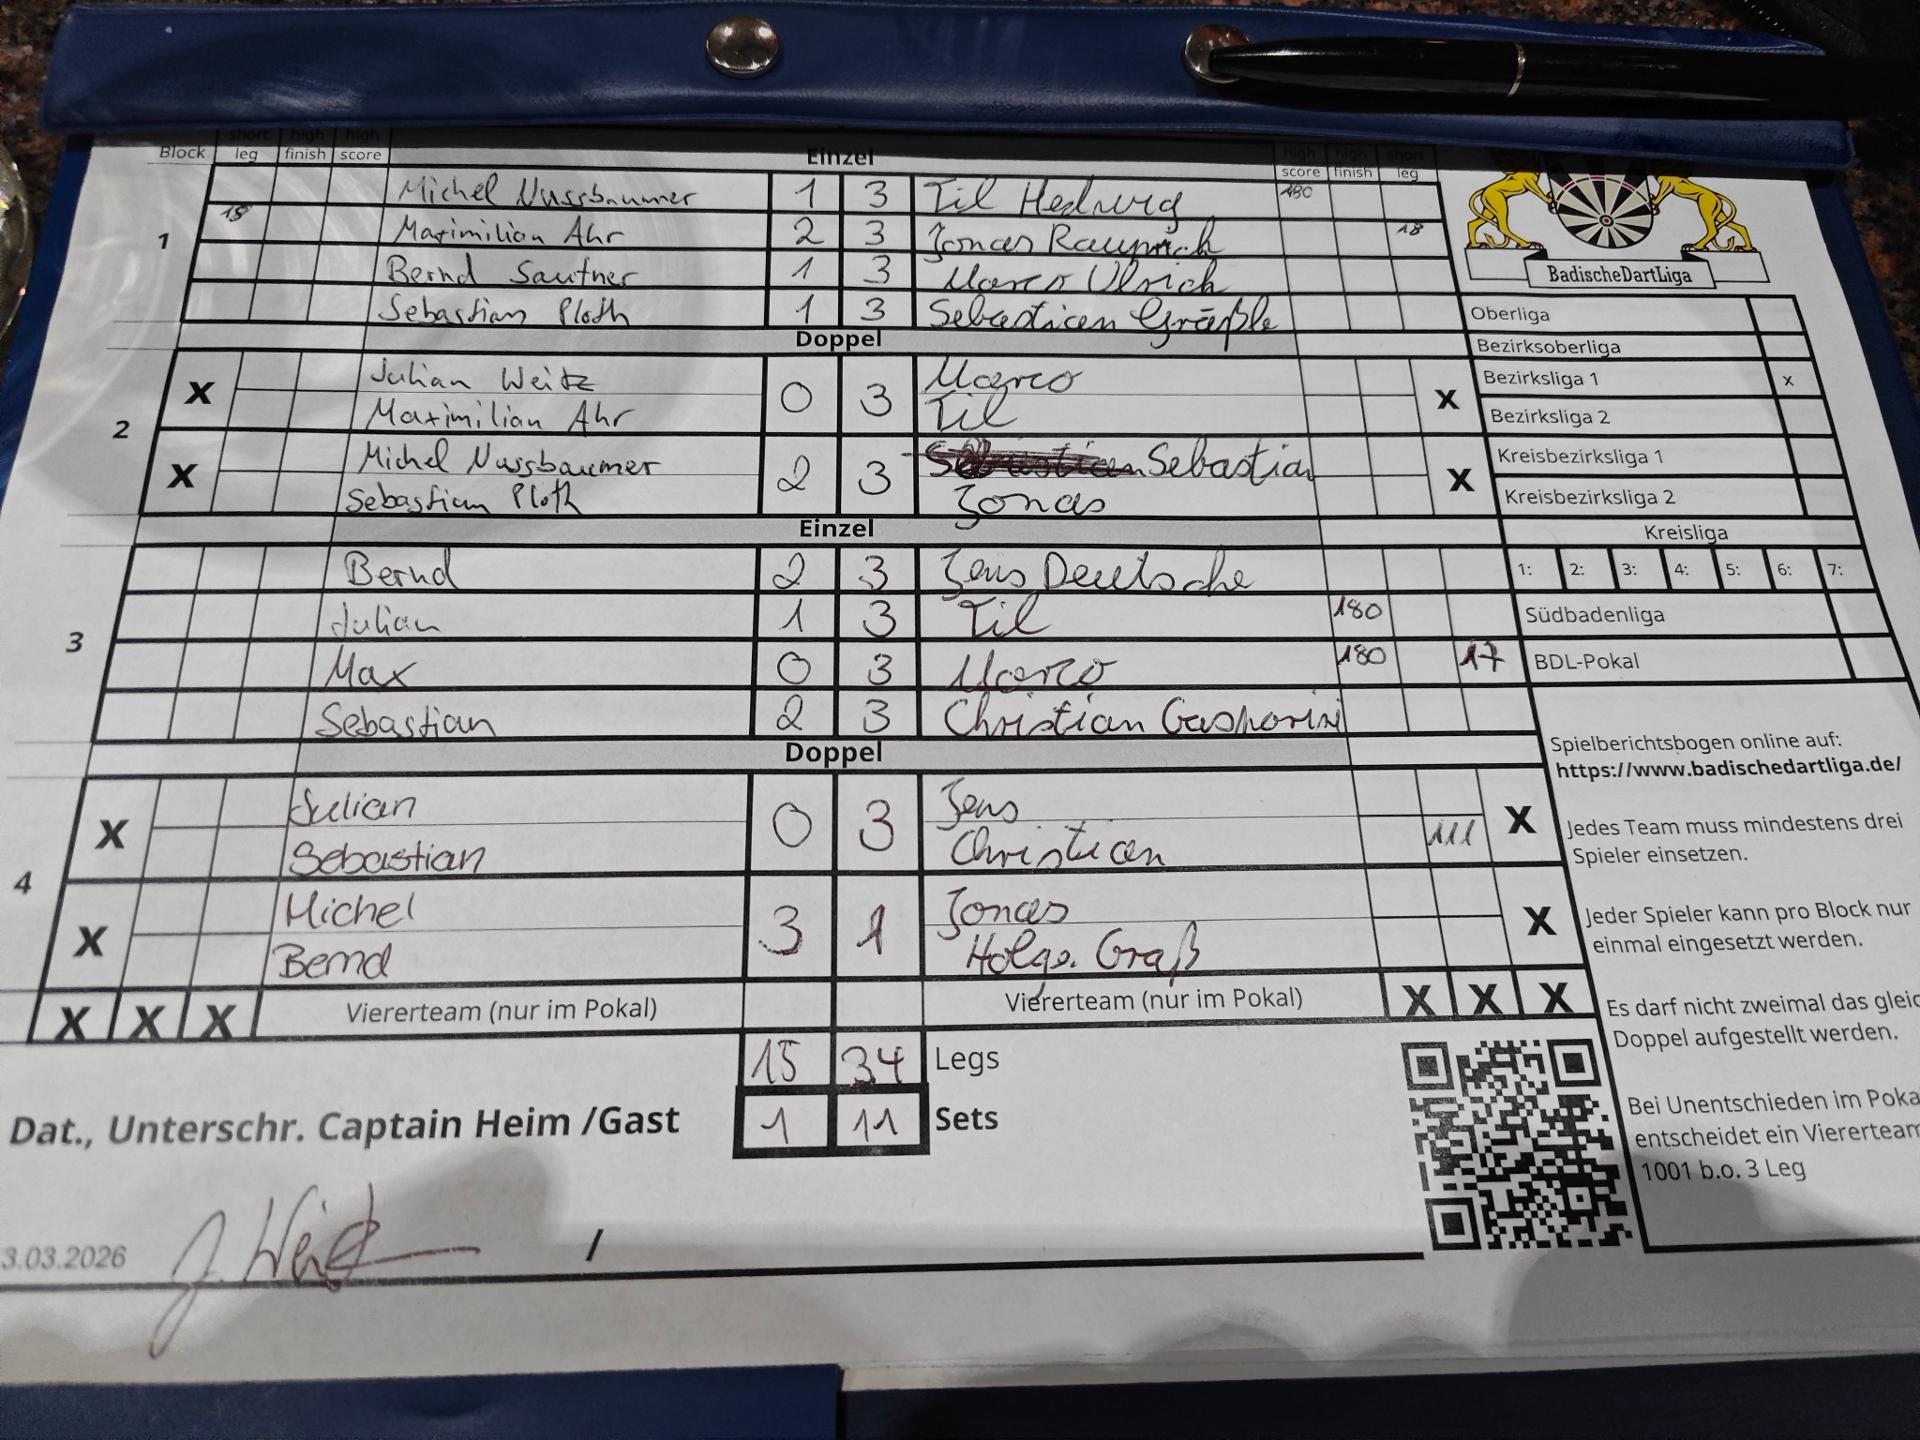 Block short leg high finish high score Einzel high score high finish short leg
Michel Nussbaumer 1 3 Til Hedwig 180
1 18 Maximilian Ahr 2 3 Jonas Raupach 18
Bernd Sautner 1 3 Marco Ulrich
Sebastian Ploth 1 3 Sebastian Gräßle
BadischeDartLiga
Oberliga
Doppel
Bezirksoberliga
2
X Julian Weitz 0 3 Marco X
Maximilian Ahr Til
X Michel Nussbaumer 2 3 Sebastian X
Sebastian Ploth Jonas
Bezirksliga 1 x
Bezirksliga 2
Kreisbezirksliga 1
Kreisbezirksliga 2
Einzel
Kreisliga
1: 2: 3: 4: 5: 6: 7:
Südbadenliga
BDL-Pokal
3
Bernd 2 3 Jens Deutsche
Julian 1 3 Til 180
Max 0 3 Marco 180 17
Sebastian 2 3 Christian Gasparini
Doppel
4
X Julian 0 3 Jens X
Sebastian Christian 111
X Michel 3 1 Jonas X
Bernd Holge. Graß
X X X Viererteam (nur im Pokal) Viererteam (nur im Pokal) X X X
15 34 Legs
1 11 Sets
Dat., Unterschr. Captain Heim /Gast
3.03.2026 J. Weitz /
Spielberichtsbogen online auf:
https://www.badischedartliga.de/
Jedes Team muss mindestens drei
Spieler einsetzen.
Jeder Spieler kann pro Block nur
einmal eingesetzt werden.
Es darf nicht zweimal das gleic
Doppel aufgestellt werden.
Bei Unentschieden im Poka
entscheidet ein Viererteam
1001 b.o. 3 Leg